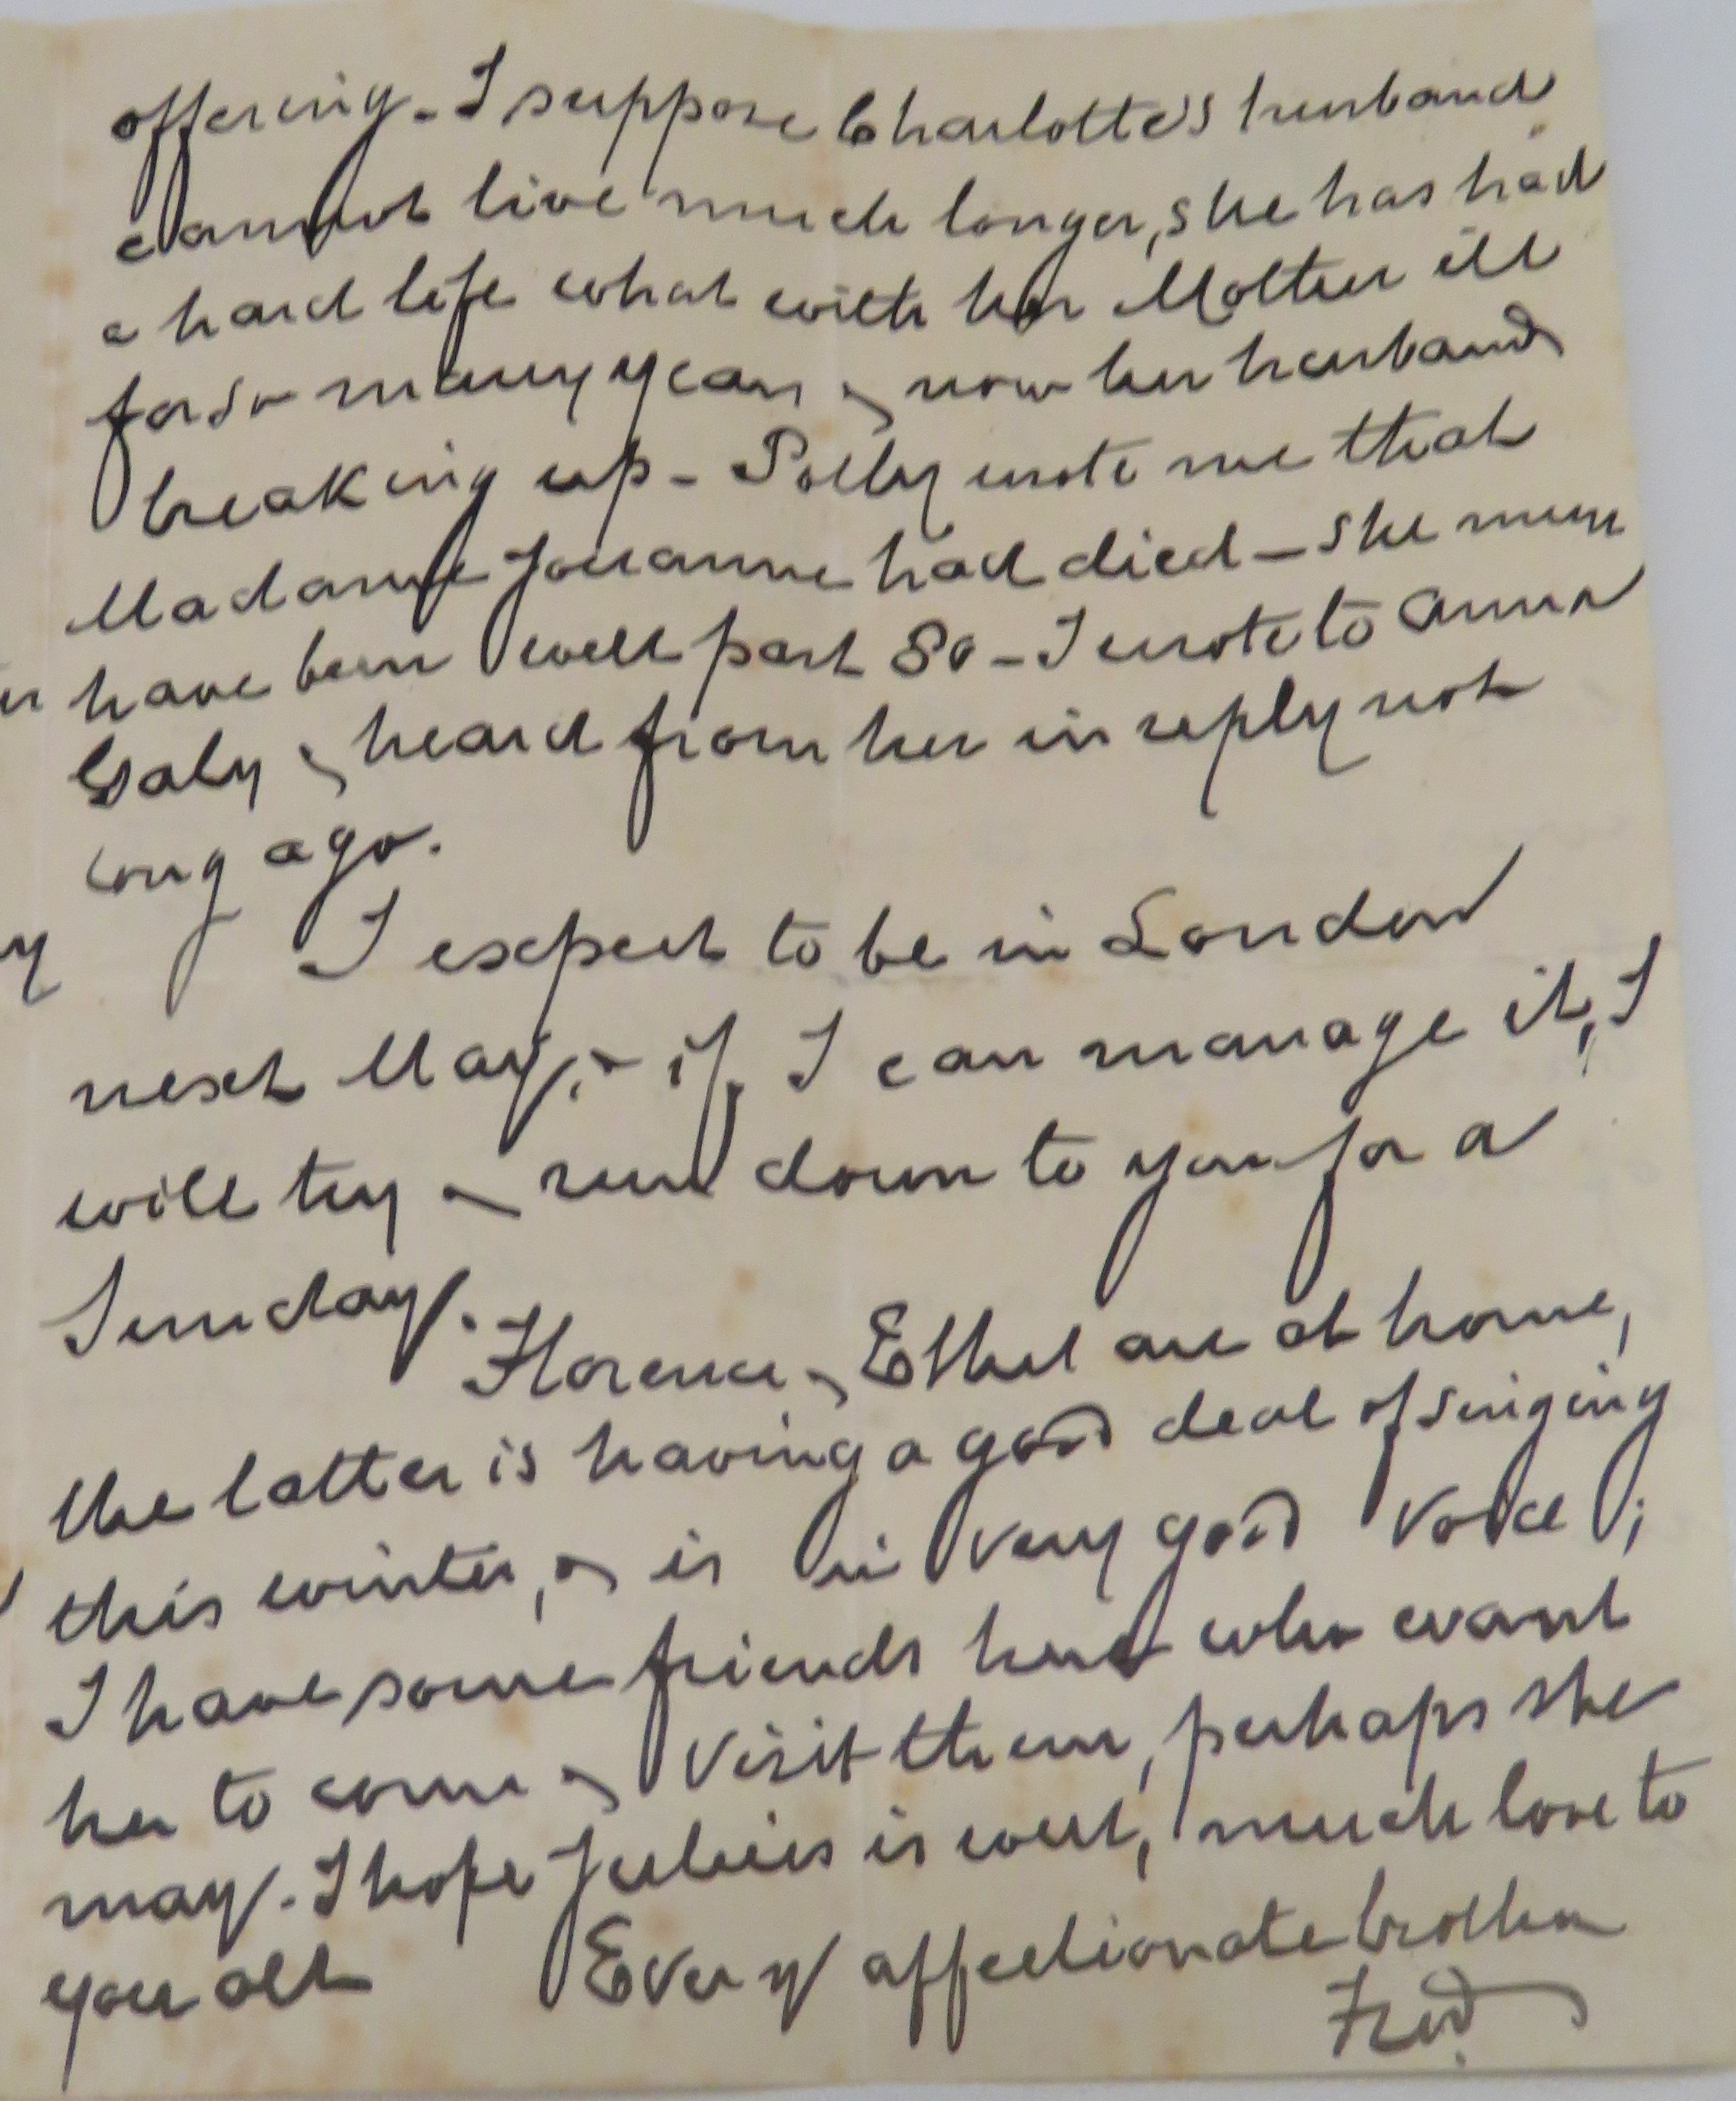 offering - I suppose Charlotte's husband
cannot live much longer, she has had
a hard life what with her Mother ill
for so many years & now her husband
breaking up - Polly wrote me that
Madame Jouanne had died - she must
have been well past 80 - I wrote to Anna
Galy & heard from her in reply not
long ago.
I expect to be in London
next May, & if I can manage it, I
will try & run down to you for a
Sunday.
Florence & Ethel are at home,
the latter is having a good deal of singing
this winter, & is in very good voice;
I have some friends here who want
her to come & visit them, perhaps she
may. I hope Julius is well, much love to
you all Ever yr affectionate brother
Fred.